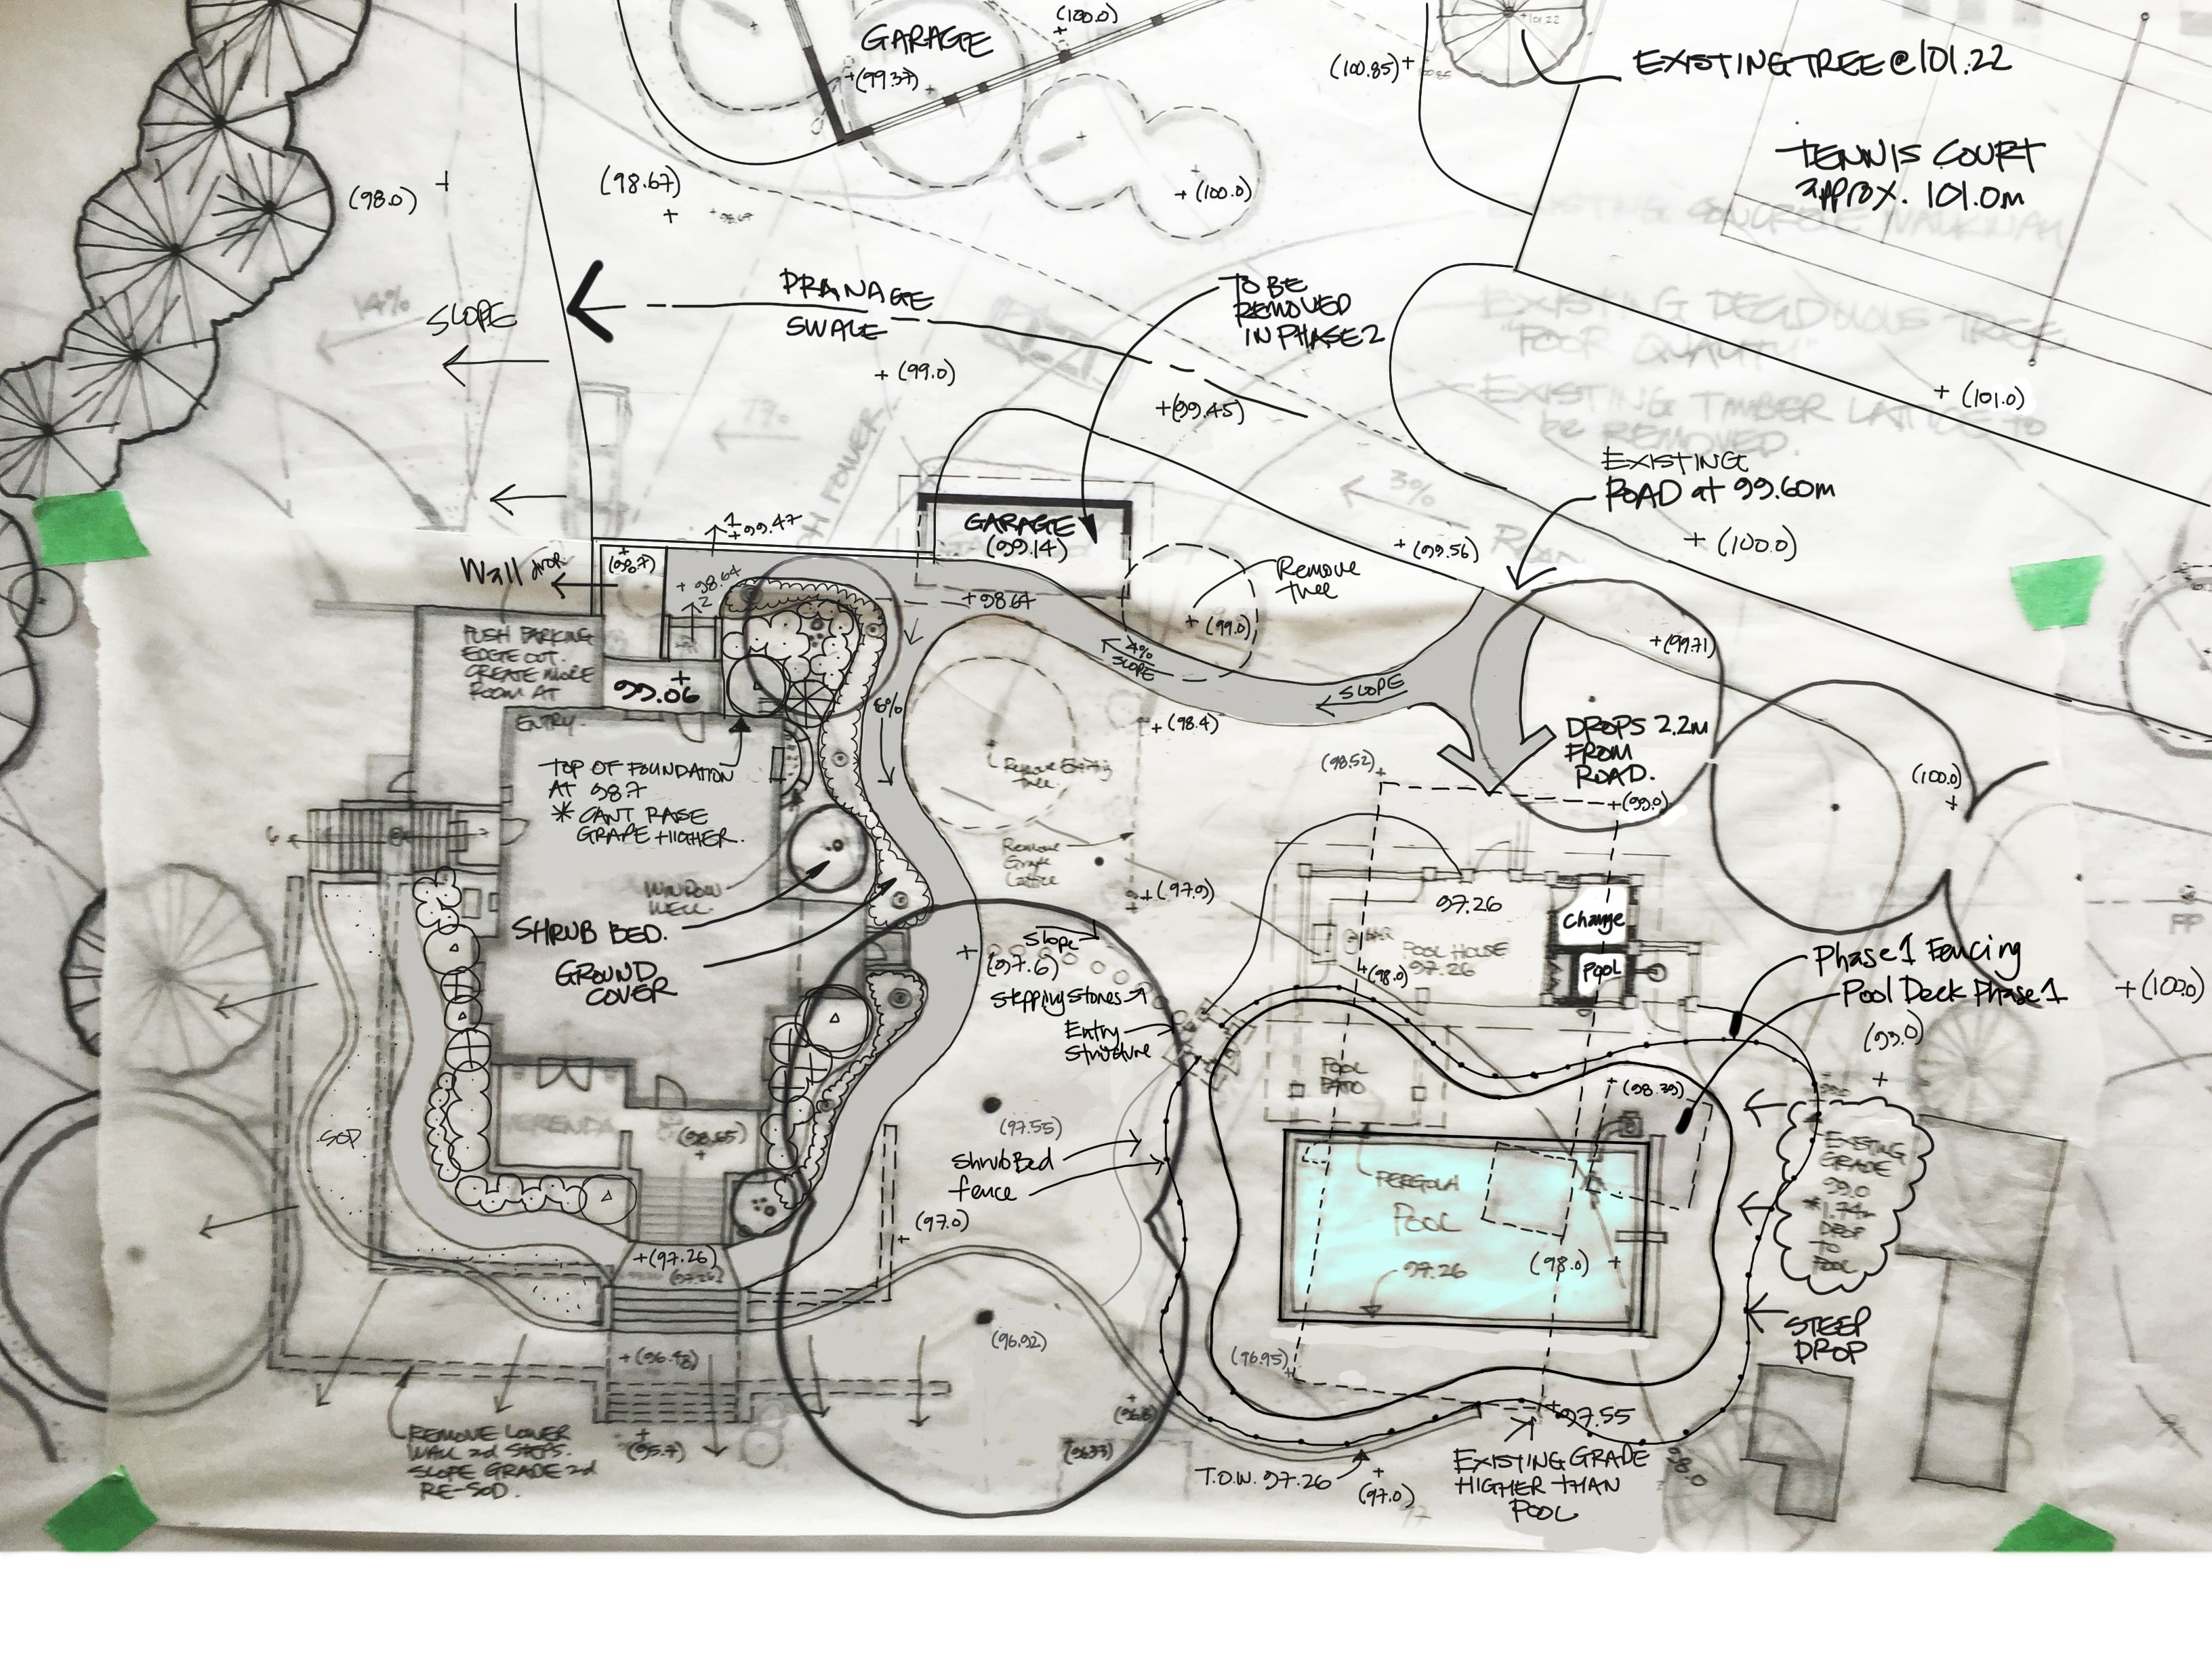 GARAGE
(100.0)
+(99.37)
101.22
(100.85)+
EXISTING TREE @ 101.22
TENNIS COURT
APPROX. 101.0m
(98.0) +
(98.67)
+
+ 98.67
+ (100.0)
EXISTING CONCRETE WALKWAY
EXISTING DECIDUOUS TREE
"POOR QUALITY"
EXISTING TIMBER LATTICE TO
be REMOVED.
14%
SLOPE
DRAINAGE
SWALE
TO BE
REMOVED
IN PHASE 2
+ (99.0)
+(99.45)
+ (101.0)
7%
3%
ROAD
EXISTING
ROAD at 99.60m
+ (99.56)
+ (100.0)
GARAGE
(99.14)
1
+99.47
Wall drop
(98.7)
+ 98.64
2
+98.64
Remove
tree
+ (99.0)
+(99.71)
4%
SLOPE
SLOPE
PUSH PARKING
EDGE OUT.
CREATE MORE
ROOM AT
ENTRY.
+
99.06
8%
+ (98.4)
DROPS 2.2M
FROM
ROAD.
(98.52) +
+(99.0)
(100.0)
+
TOP OF FOUNDATION
AT 98.7
* CANT RAISE
GRADE HIGHER.
Remove Existing
tree.
Remove
Grape
Lattice
WINDOW
WELL.
SHRUB BED.
GROUND
COVER
+ (97.9)
97.26
Change
BAR
POOL HOUSE
97.26
POOL
+(98.0)
Slope
+ (97.6)
Stepping Stones
Entry
Structure
Phase 1 Fencing
Pool Deck Phase 1
+(100.0)
(99.0)
+
PP
POOL
PATIO
+ (98.39)
SOD
VERENDA
(98.65)
+
(97.55)
Shrub Bed
fence
EXISTING
GRADE
99.0
*1.74m
DROP
TO
POOL
PERGOLA
POOL
97.26
(98.0) +
(97.0)
+
+(97.26)
STEEP
DROP
(96.92)
+(96.48)
(96.95)
+
+97.55
REMOVE LOWER
WALL and STEPS.
SLOPE GRADE and
RE-SOD.
+
(95.7)
T.O.W. 97.26
+
(97.0)
EXISTING GRADE
HIGHER THAN
POOL
98.0